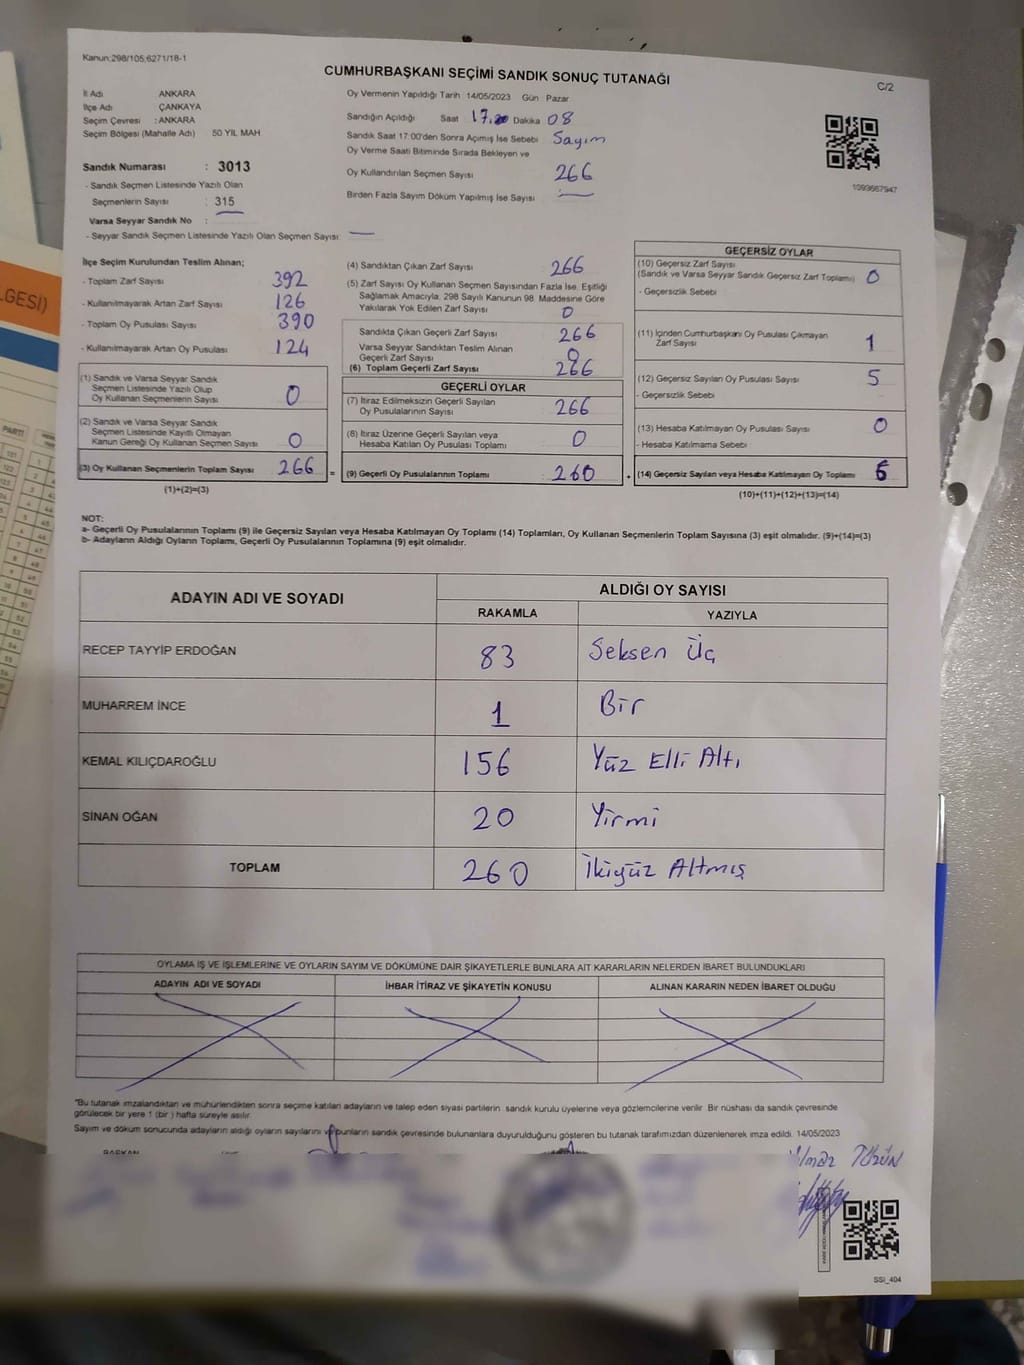 Kanun:298/105;6271/18-1
CUMHURBAŞKANI SEÇİMİ SANDIK SONUÇ TUTANAĞI
C/2
İl Adı ANKARA
İlçe Adı ÇANKAYA
Seçim Çevresi : ANKARA
Seçim Bölgesi (Mahalle Adı) 50 YIL MAH
Sandık Numarası : 3013
- Sandık Seçmen Listesinde Yazılı Olan
Seçmenlerin Sayısı : 315
Varsa Seyyar Sandık No :
- Seyyar Sandık Seçmen Listesinde Yazılı Olan Seçmen Sayısı: —
Oy Vermenin Yapıldığı Tarih 14/05/2023 Gün Pazar
Sandığın Açıldığı Saat 17. Dakika 08
Sandık Saat 17:00'den Sonra Açımış İse Sebebi Sayım
Oy Verme Saati Bitiminde Sırada Bekleyen ve
Oy Kullandırılan Seçmen Sayısı 266
Birden Fazla Sayım Döküm Yapılmış İse Sayısı —
1093667947
İlçe Seçim Kurulundan Teslim Alınan;
- Toplam Zarf Sayısı 392
- Kullanılmayarak Artan Zarf Sayısı 126
- Toplam Oy Pusulası Sayısı 390
- Kullanılmayarak Artan Oy Pusulası 124
(1) Sandık ve Varsa Seyyar Sandık
Seçmen Listesinde Yazılı Olup
Oy Kullanan Seçmenlerin Sayısı 0
(2) Sandık ve Varsa Seyyar Sandık
Seçmen Listesinde Kayıtlı Olmayan
Kanun Gereği Oy Kullanan Seçmen Sayısı 0
(3) Oy Kullanan Seçmenlerin Toplam Sayısı 266 =
(1)+(2)=(3)
(4) Sandıktan Çıkan Zarf Sayısı 266
(5) Zarf Sayısı Oy Kullanan Seçmen Sayısından Fazla İse, Eşitliği
Sağlamak Amacıyla, 298 Sayılı Kanunun 98. Maddesine Göre
Yakılarak Yok Edilen Zarf Sayısı 0
Sandıkta Çıkan Geçerli Zarf Sayısı 266
Varsa Seyyar Sandıktan Teslim Alınan
Geçerli Zarf Sayısı 0
(6) Toplam Geçerli Zarf Sayısı 266
GEÇERLİ OYLAR
(7) İtiraz Edilmeksizin Geçerli Sayılan
Oy Pusulalarının Sayısı 266
(8) İtiraz Üzerine Geçerli Sayılan veya
Hesaba Katılan Oy Pusulası Toplamı 0
(9) Geçerli Oy Pusulalarının Toplamı : 260
GEÇERSİZ OYLAR
(10) Geçersiz Zarf Sayısı
(Sandık ve Varsa Seyyar Sandık Geçersiz Zarf Toplamı) 0
- Geçersizlik Sebebi
(11) İçinden Cumhurbaşkanı Oy Pusulası Çıkmayan
Zarf Sayısı 1
(12) Geçersiz Sayılan Oy Pusulası Sayısı 5
- Geçersizlik Sebebi
(13) Hesaba Katılmayan Oy Pusulası Sayısı 0
- Hesaba Katılmama Sebebi
(14) Geçersiz Sayılan veya Hesaba Katılmayan Oy Toplamı 6
(10)+(11)+(12)+(13)=(14)
NOT:
a- Geçerli Oy Pusulalarının Toplamı (9) ile Geçersiz Sayılan veya Hesaba Katılmayan Oy Toplamı (14) Toplamları, Oy Kullanan Seçmenlerin Toplam Sayısına (3) eşit olmalıdır. (9)+(14)=(3)
b- Adayların Aldığı Oyların Toplamı, Geçerli Oy Pusulalarının Toplamına (9) eşit olmalıdır.
ADAYIN ADI VE SOYADI
ALDIĞI OY SAYISI
RAKAMLA YAZIYLA
RECEP TAYYİP ERDOĞAN 83 Seksen Üç
MUHARREM İNCE 1 Bir
KEMAL KILIÇDAROĞLU 156 Yüz Elli Altı
SİNAN OĞAN 20 Yirmi
TOPLAM 260 İkiyüz Altmış
OYLAMA İŞ VE İŞLEMLERİNE VE OYLARIN SAYIM VE DÖKÜMÜNE DAİR ŞİKAYETLERLE BUNLARA AİT KARARLARIN NELERDEN İBARET BULUNDUKLARI
ADAYIN ADI VE SOYADI İHBAR İTİRAZ VE ŞİKAYETİN KONUSU ALINAN KARARIN NEDEN İBARET OLDUĞU
"Bu tutanak imzalandıktan ve mühürlendikten sonra seçime katılan adayların ve talep eden siyasi partilerin sandık kurulu üyelerine veya gözlemcilerine verilir. Bir nüshası da sandık çevresinde
görülecek bir yere 1 (bir) hafta süreyle asılır.
Sayım ve döküm sonucunda adayların aldığı oyların sayılarını ve bunların sandık çevresinde bulunanlara duyurulduğunu gösteren bu tutanak tarafımızdan düzenlenerek imza edildi. 14/05/2023
BAŞKAN
SSI_404
LGESİ)
PARTİ